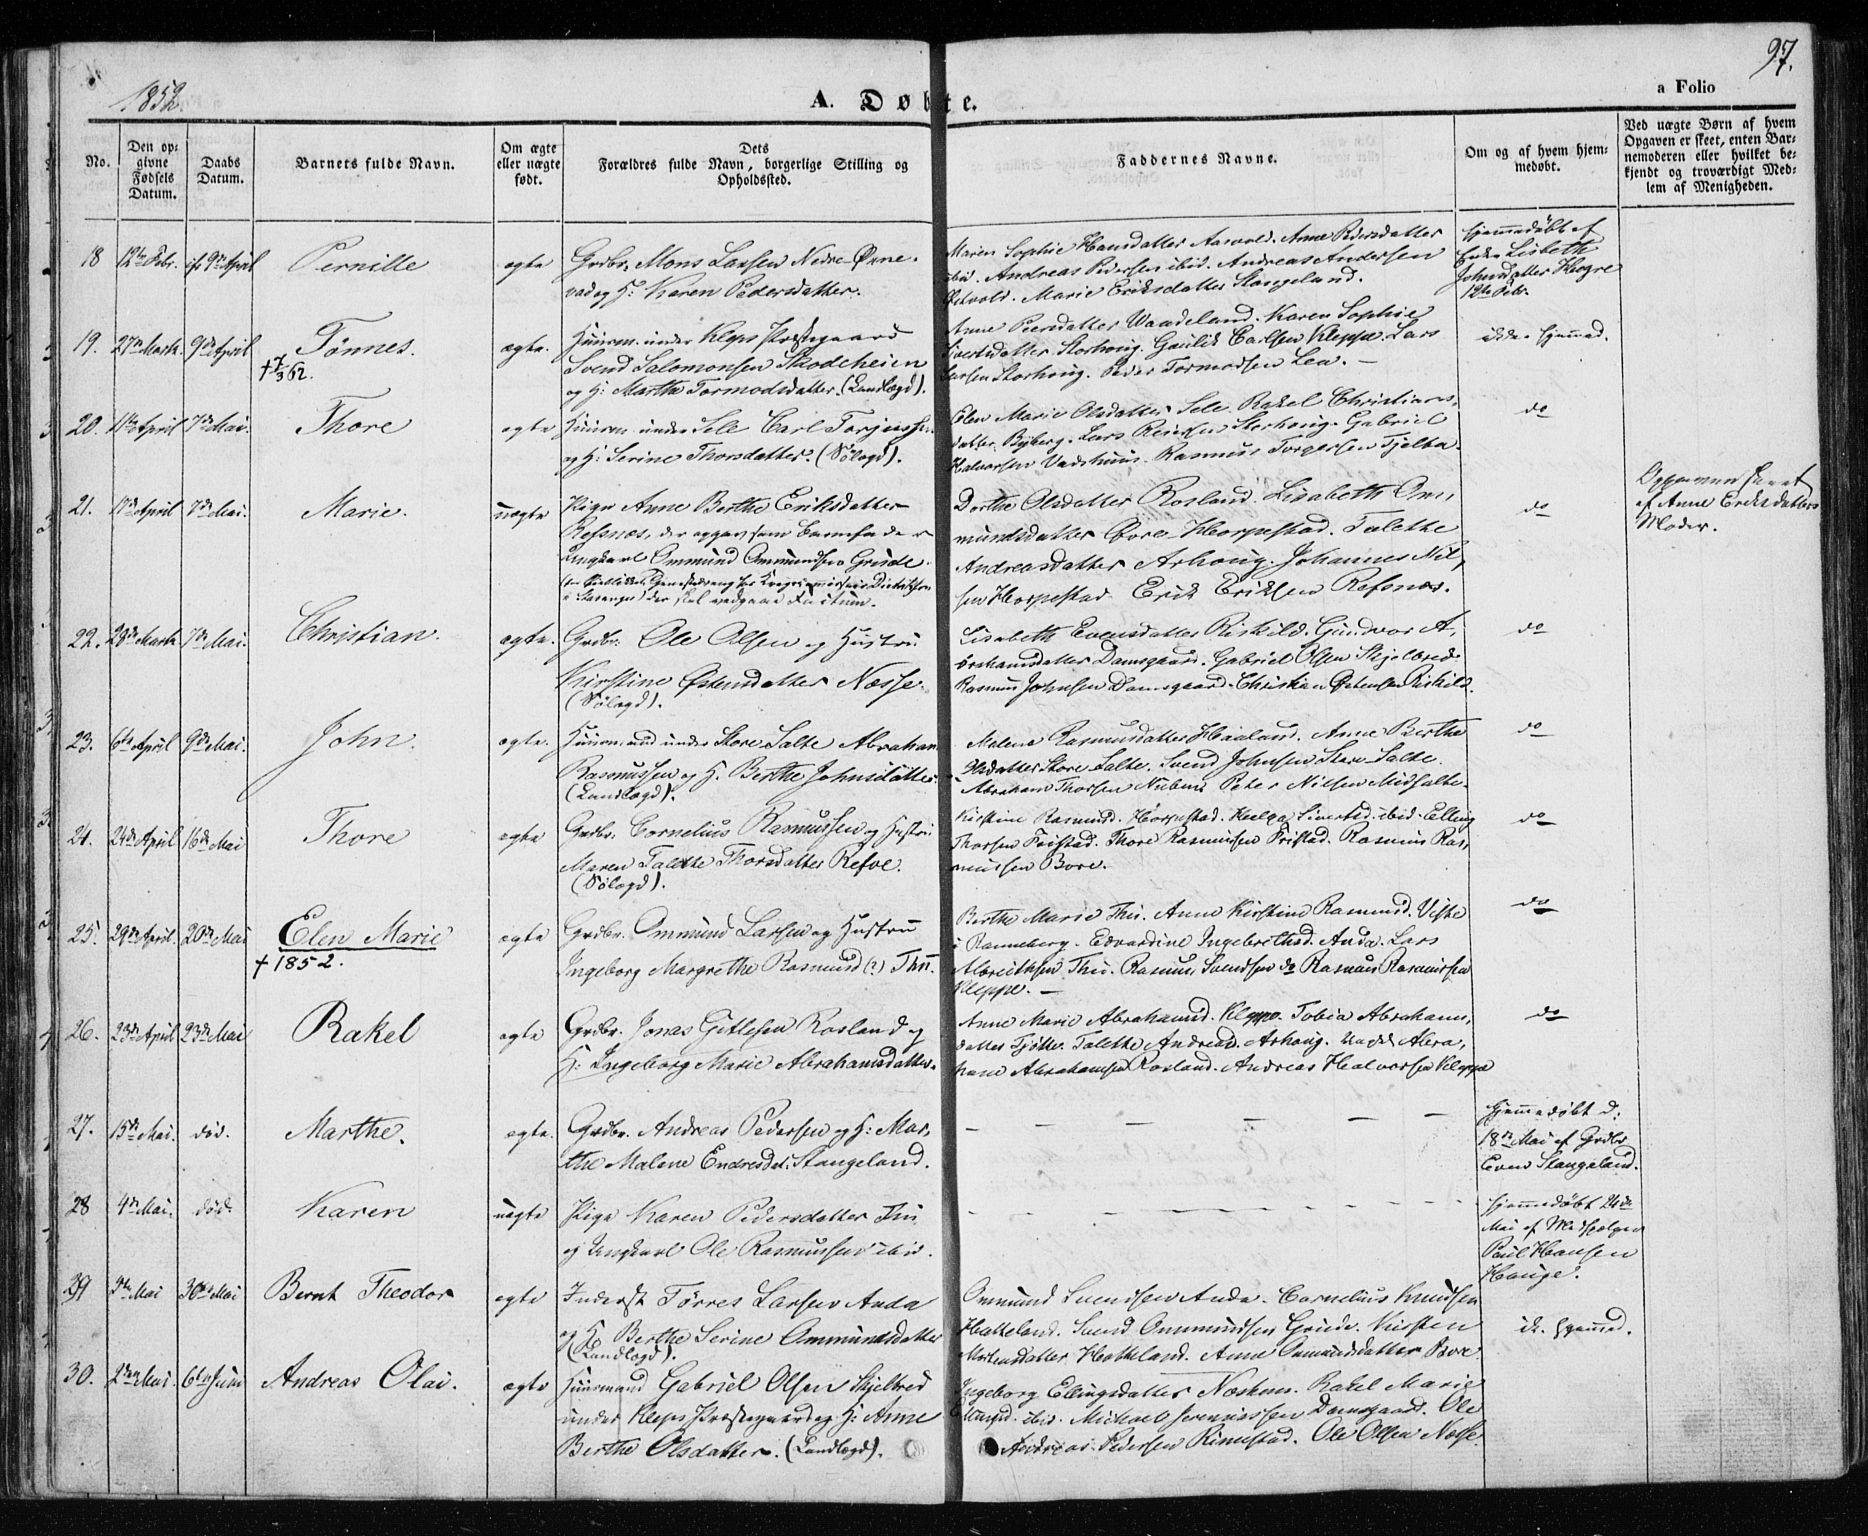 1852.
A. Døbte.
97.
a Folio
No.
Den opgivne Fødsels Datum.
Daabs Datum.
Barnets fulde Navn.
Om ægte eller uægte født.
Dets Forældres fulde Navn, borgerlige Stilling og Opholdssted.
Faddernes Navne.
Om og af hvem hjemmedøbt.
Ved uægte Børn af hvem Opgaven er skeet, enten Barnemoderen eller hvilket bekjendt og troværdigt Medlem af Menigheden.
18 12te Febr. 9de April Pernille ægte
Grdbr. Mons Larsen Nedre Øxne-
vad og H: Karen Pedersdatter.
Maren Sophie Hansdatter Aasvold. Anne Pedersdatter
ibid. Andreas Pedersen ibid. Andreas Andersen
Marie Eriksdatter Stangeland.
Hjemmedöbt af
Enke Lisbeth
Johnsdatter Kleppe
12te Febr.
19. 27de Marts 9de April Tønnes. ægte.
† 7/3 62.
Huusm. under Kleps Præstegaard
Svend Salomonsen Skodeheien
og H: Marthe Tormodsdatter. (Landlægd).
Anne Peersdatter Waadeland. Karen Sophie
Sivertsdatter Storhoug. Gaulik Carlsen Kleppe. Lars
Larsen Storhoug. Peder Tormodsen Lea. —
ikke hjemmed.
20. 11te April 7de Mai. Thore ægte
Huusm. under Sele Carl Torjussen
og H: Serine Thorsdatter. (Sölægd).
Elen Marie Olsdatter Sele. Rakel Christians-
datter Byberg. Lars Storhoug. Gabriel
Halvorsen Vadshuus. Rasmus Torgersen Tjelta.
do
21. 17de April 7de Mai. Marie. uægte
Pige Anne Berthe Eriksdatter
Refsnæs, der opgav som Barnefader
Ungkarl Ommund Ommundsen Grude.
der skal vedgaae Factum.
Dorthe Olsdatter Rosland. Lisabeth Om-
mundsdatter Bore Horpestad. Talette
Andreasdatter Arhoug. Johannes Niel-
sen Horpestad Erik Eriksen Refsnæs.
do
Opgaven skeet
af Anne Eriksdatters
Moder.
22. 29de Marts 7de Mai. Christian. ægte.
Grdbr. Ole Olsen og Hustru
Kirstine Østensdatter Næsse.
(Sölægd).
Lisabeth Evensdatter Riskild. Gundvor A-
brahamsdatter Damsgaard. Gabriel Olsen Skjelbred.
Rasmus Johnsen Damsgaard. Christian Østensen Riskild.
do
23. 6te April 9de Mai. John. ægte.
Huusmand under Store Salte Abraham
Rasmussen og H. Berthe Johnsdatter.
(Landlægd).
Malene Rasmusdatter Haaland. Anne Berthe
Olsdatter Store Salte. Svend Johnsen Store Salte.
Abraham Thorsen Peter Nilsen Midsalte.
do
24. 24de April 16de Mai Thore ægte
Grdbr. Cornelius Rasmussen og Hustru
Maren Talette Thorsdatter Refve.
(Sölægd).
Kirstine Rasmusd. Hørpestad. Helga Sivertsd. ibid. Elling
Thorsen Friestad. Thore Rasmussen Fristad. Rasmus Ras-
mussen Bore.
do
25. 29de April 20de Mai Elen Marie ægte
† 1852.
Grdbr. Ommund Larsen og Hustru
Ingeborg Margrethe Rasmusd (?) Thu.
Berthe Marie Thu. Anne Kirstine Rasmusd. Viste
i Ranneberg. Edvardine Ingebrethsd. Anda. Lars
Albrecthsen Thu. Rasmus Svendsen do Rasmus Rasmussen
Kleppe. —
do
26. 23de April 23de Mai Rakel ægte
Grdbr. Jonas Gitlesen Rosland og
H: Ingeborg Marie Abrahamsdatter.
Anne Marie Abrahamsd. Kleppe. Tobia Abrahams-
datter Tjötte. Talette Andreasd. Arhoug. Abra-
ham Abrahamsen Rosland. Andreas Halvorsen Kleppe
do
27. 15de Mai. död. Marthe. ægte.
Grdbr. Andreas Pedersen og H: Mar-
the Malene Endresdat. Stangeland.
Hjemmedöbt d.
18de Mai af Grdbr.
Even Stangeland.
28 4de Mai. död. Karen uægte
Pige Karen Pedersdatter Thu
og Ungkarl Ole Rasmussen ibid.
Hjemmedöbt 24de
Mai af Medhjælper
Poul Hansen
Hauge.
29 3die Mai 30te Mai Bernt Theodor ægte
Inderst Törres Larsen Anda
og H. Berthe Serine Ommundsdatter
(Landlægd).
Ommund Svendsen Anda. Cornelius Knudsen
Hatteland. Svend Ommundsen Grude. Kirsten
Mortensdatter Hatteland. Anne Ommundsdatter Bore
ik. hjemmed.
30. 2den Mai. 6te Juni Andreas Olai. ægte
Huusmand Gabriel Olsen Skjelbred
under Kleps Præstegaard og H: Anne
Berthe Olsdatter. (Landlægd).
Ingeborg Ellingsdatter Næshum. Rakel Marie
ibid. Michael Damsgaard. Ole
Andreas Pedersen Rimestad. Ole Olsen Næsse.